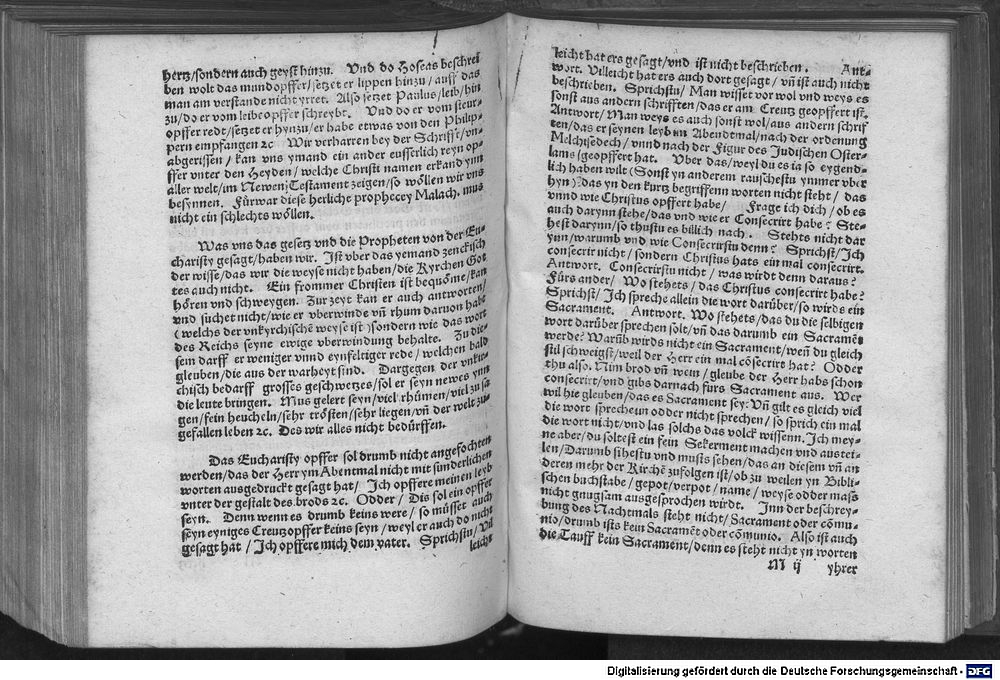 hertz/sondern auch geyst hinzu. Vnd do Hoseas beschrei
ben wolt das mundopffer/setzet er lippen hinzu/auff das
man am verstande nicht yrret. Also setzet Paulus/leib/hin
zu/do er vom leibeopffer schreybt. Vnd do er vom steur-
opffer redt/setzet er hynzu/er habe etwas von den Philip-
pern empfangen ꝛc Wir verharren bey der Schrifft/vn-
abgerissen/kan vns ymand ein ander eusserlich reyn op-
ffer vnter den Heyden/welche Christi namen erkand ynn
aller welt/im Newen Testament zeigen/so wöllen wir vns
besynnen. Fürwar diese herliche prophecey Malach. mus
nicht ein schlechts wöllen.
Was vns das gesetz vnd die Propheten von der Eu-
charisty gesagt/haben wir. Ist vber das yemand zenckisch
der wisse/das wir die weyse nicht haben/die Kyrchen Got
tes auch nicht. Ein frommer Christen ist bequöme/kan
hören vnd schweygen. Zur zeyt kan er auch antworten/
vnd suchet nicht/wie er vberwinde vñ rhum daruon habe
(welchs der vnkyrchische weyse ist) sondern wie das wort
des Reichs seyne ewige vberwindung behalte. Zu die-
sem darff er weniger vnnd eynfeltiger rede/welchen bald
gleuben/die aus der warheyt sind. Dargegen der vnkir-
chisch bedarff grosses geschwetzes/sol er seyn newes ynn
die leute bringen. Mus gelert seyn/viel rhümen/viel zu sa
gen/fein heucheln/sehr trösten/sehr liegen/vñ der welt zu-
gefallen leben ꝛc. Des wir alles nicht bedürffen.
Das Eucharisty opffer sol drumb nicht angefochten
werden/das der Herr ym Abentmal nicht mit sunderlichen
worten ausgedruckt gesagt hat/Ich opffere meinen leyb
vnter der gestalt des brods ꝛc. Odder/Dis sol ein opffer
seyn. Denn wenn es drumb keins were/so müsset auch
seyn eyniges Creutzopffer keins seyn/weyl er auch do nicht
gesagt hat/Ich opffere mich dem vater. Sprichstu/Vil
leicht
leicht hat ers gesagt/vnd ist nicht beschrieben. Ant-
wort. Villeicht hat ers auch dort gesagt/vñ ist auch nicht
beschrieben. Sprichstu/Man wisset vor wol vnd weys es
sonst aus andern schrifften/das er am Creutz geopffert ist.
Antwort/Man weys es auch sonst wol/aus andern schrif
ten/das er seynen leyb im Abendtmal/nach der ordenung
Melchisedech/vnnd nach der Figur des Judischen Oster-
lams geopffert hat. Vber das/weyl du es ia so eygend-
lich haben wilt (Sonst yn anderem rauschestu ymmer vber
hyn) das yn den kurtz begriffenn worten nicht steht/das
vnnd wie Christus opffert habe/ Frage ich dich/ob es
auch darynn stehe/das vnd wie er Consecrirt habe? Ste-
hest darynn/so thustu es billich nach. Stehts nicht dar
ynn/warumb vnd wie Consecrirstu denn? Sprichst/Ich
consecrir nicht/sondern Christus hats ein mal consecrirt.
Antwort. Consecrirstu nicht/was wirdt denn daraus?
Fürs ander/Wo stehets/das Christus consecrirt habe?
Sprichst/Ich spreche allein die wort darüber/so wirds ein
Sacrament. Antwort. Wo stehets/das du die selbigen
wort darüber sprechen solt/vñ das darumb ein Sacramēt
werde? Warūb wirds nicht ein Sacrament/weñ du gleich
stil schweigst/weil der Herr ein mal cōsecrirt hat? Odder
thu also. Nim brod vñ wein/gleube der Herr habs schon
consecrirt/vnd gibs darnach fürs Sacrament aus. Wer
wil hie gleuben/das es Sacrament sey: Vñ gilt es gleich viel
die wort sprechenn odder nicht sprechen/so sprich ein mal
die wort nicht/vnd las solchs das volck wissenn. Ich mey-
ne aber/du soltest ein fein Sekerment machen vnd austei-
len/Darumb sihestu vnd musts sehen/das an diesem vñ an
deren mehr der Kirchē zufolgen ist/ob zu weilen yn Bibli-
schen buchstabe/gepot/verpot/name/weyse odder mass
nicht gnugsam ausgesprochen wirdt. Inn der beschrey-
bung des Nachtmals steht nicht/Sacrament oder cōmu-
nio/drumb ists kein Sacramēt oder cōmunio. Also ist auch
die Tauff kein Sacrament/denn es steht nicht yn worten
M ij yhrer
Digitalisierung gefördert durch die Deutsche Forschungsgemeinschaft - DFG